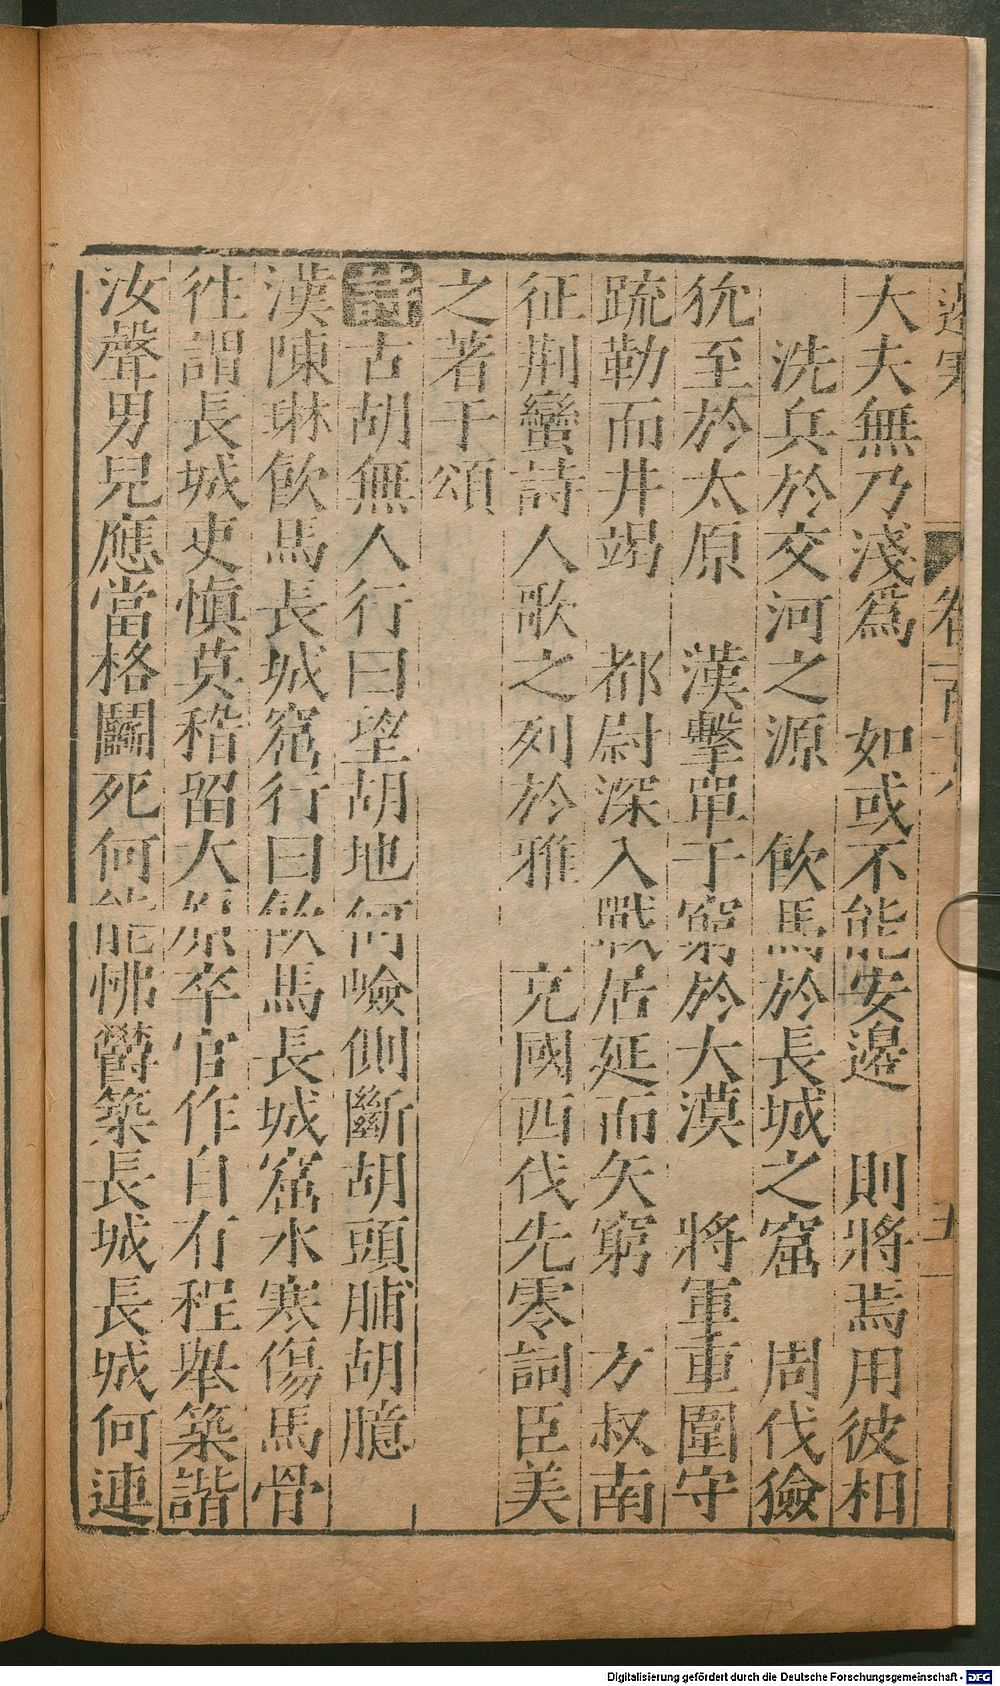 大夫無乃淺爲　如或不能安邊　則將焉用彼相
洗兵於交河之源　飲馬於長城之窟　周伐獫
狁至於太原　漢擊單于窮於大漠　將軍重圍守
疏勒而井竭　都尉深入戰居延而矢窮　方叔南
征荆蠻詩人歌之列於雅　充國西伐先零詞臣美
之著于頌
詩古胡無人行曰望胡地何嶮側斷胡頭脯胡臆
漢陳琳飲馬長城窟行曰飲馬長城窟水寒傷馬骨
徃謂長城吏愼莫稽留大原卒官作自有程舉築諧
汝聲男兒應當格鬭死何能怫鬱築長城長城何連
Digitalisierung gefördert durch die Deutsche Forschungsgemeinschaft - DFG